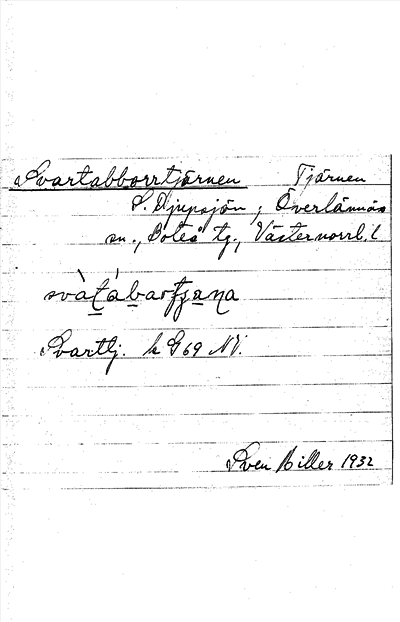 Svartabborrtjärnen Tjärnen
S. Djupsjön, Överlännäs
sn., Boteå tg., Västernorrl. l
svàtábartjạna
Svarttj. k G69 NV.
Sven Biller 1932